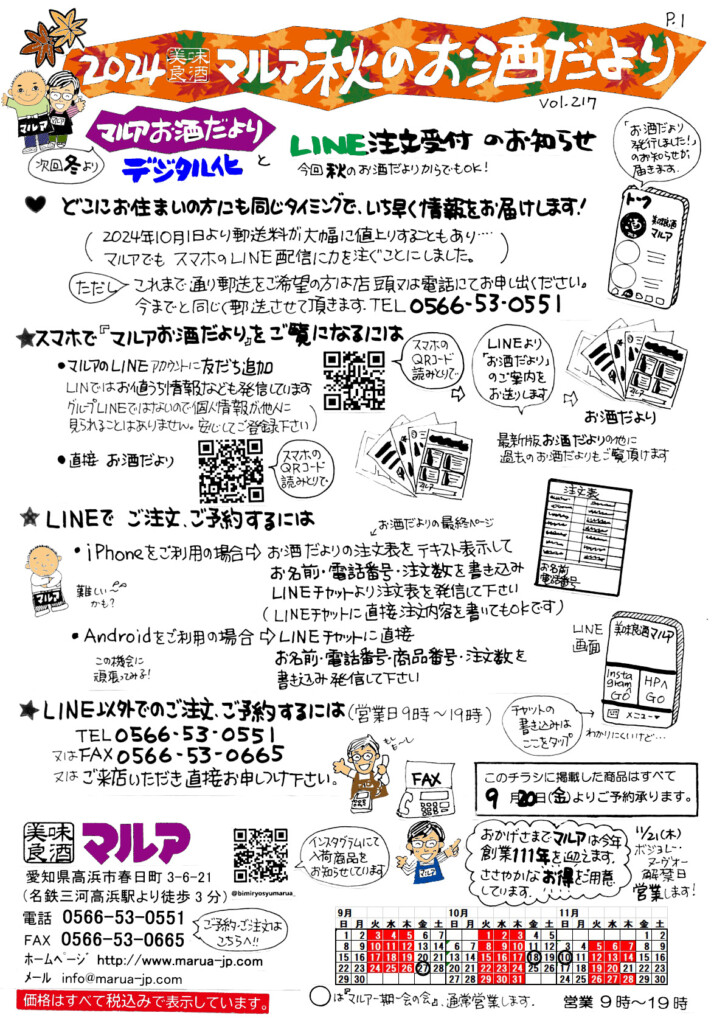 P.1
2024 美味良酒 マルア 秋のお酒だより
vol.217
マルアお酒だより
次回冬より
デジタル化 と
LINE注文受付 のお知らせ
今回秋のお酒だよりからでもOK!
「お酒だより
発行しました!」
のお知らせが
届きます.
トーク
酒
美味良酒
マルア
マルア
♥ どこにお住まいの方にも同じタイミングで、いち早く情報をお届けします!
(2024年10月1日より郵送料が大幅に値上りすることもあり…
マルアでも スマホのLINE配信に力を注ぐことにしました。)
ただし これまで通り郵送をご希望の方は店頭又は電話にてお申し出ください。
今までと同じく郵送させて頂きます. TEL 0566-53-0551
★スマホで『マルアお酒だより』をご覧になるには
•マルアのLINEアカウントに友だち追加
LINではお値うち情報なども発信しています
グループLINEではないので個人情報が他人に
見られることはありません。安心してご登録下さい
スマホの
QRコード
読みとりで
⇨
LINEより
「お酒だより」
のご案内を
お送りします
⇨
お酒だより
最新版お酒だよりの他に
過去のお酒だよりもご覧頂けます
•直接 お酒だより
スマホの
QRコード
読みとりで
★ LINEで ご注文、ご予約するには
お酒だよりの最終ページ
•iPhoneをご利用の場合⇨お酒だよりの注文表をテキスト表示して
お名前・電話番号・注文数を書き込み
LINEチャットより注文表を発信して下さい
(LINEチャットに直接注文内容を書いてもOKです)
注文表
お名前
電話番号
マルア
難しい〜
かも?
•Androidをご利用の場合⇨LINEチャットに直接
お名前・電話番号・商品番号・注文数を
書き込み発信して下さい
この機会に
頑張ってみる!
LINE
画面
美味良酒マルア
Insta
gramへ
GO
HPへ
GO
メニュー▼
チャットの
書き込みは
ここをタップ
わかりにくいけど…
★LINE以外でのご注文、ご予約するには(営業日9時〜19時)
TEL 0566-53-0551
又はFAX 0566-53-0665
又は ご来店いただき直接お申しつけ下さい。
FAX
このチラシに掲載した商品はすべて
9月20日(金)よりご予約承ります.
美味良酒 マルア
愛知県高浜市春日町3-6-21
(名鉄三河高浜駅より徒歩3分)
@bimiryosyumarua
インスタグラムにて
入荷商品を
お知らせしています
おかげさまでマルアは今年
創業111年を迎えます.
ささやかなお得をご用意
しています.
11/21(木)
ボジョレー・
ヌーヴォー
解禁日
営業します!
電話 0566-53-0551
FAX 0566-53-0665
ご予約・ご注文は
こちらへ!!
ホームページ http://www.marua-jp.com
メール info@marua-jp.com
価格はすべて税込みで表示しています。
9月 日 月 火 水 木 金 土
1 2 3 4 5 6 7
8 9 10 11 12 13 14
15 16 17 18 19 20 21
22 23 24 25 26 27 28
29 30
10月 日 月 火 水 木 金 土
1 2 3 4 5
6 7 8 9 10 11 12
13 14 15 16 17 18 19
20 21 22 23 24 25 26
27 28 29 30 31
11月 日 月 火 水 木 金 土
1 2
3 4 5 6 7 8 9
10 11 12 13 14 15 16
17 18 19 20 21 22 23
24 25 26 27 28 29 30
○は『マルア一期一会の会』、通常営業します. 営業 9時〜19時